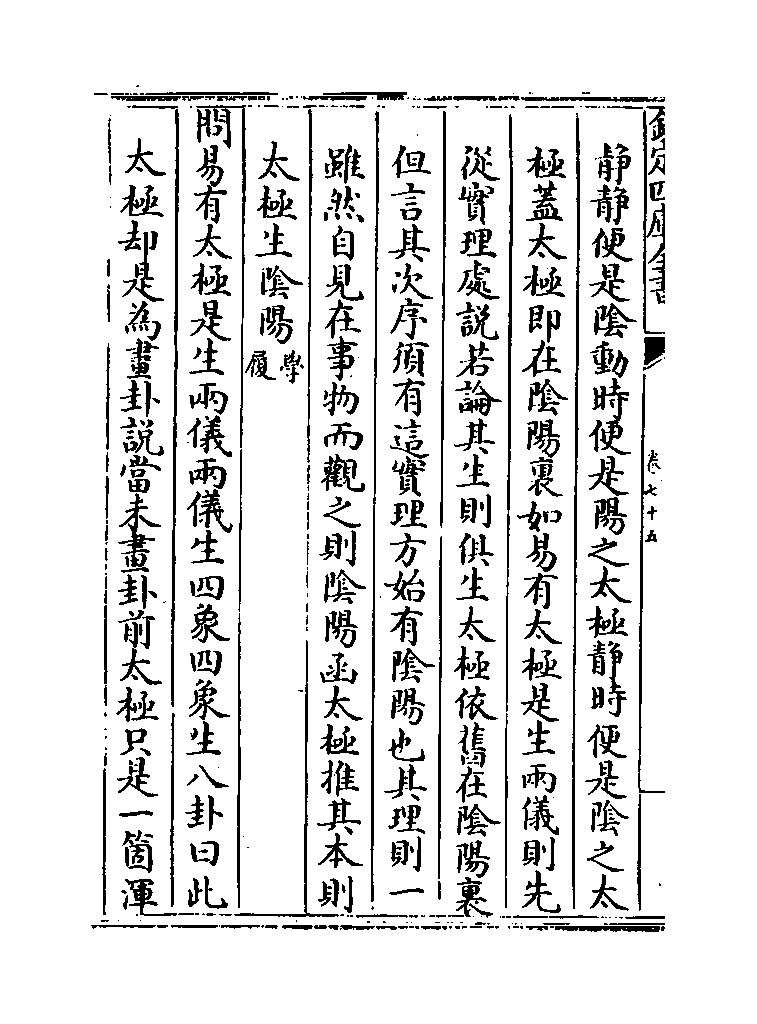 欽定四庫全書
卷七十五
静静便是陰動時便是陽之太極静時便是陰之太
極蓋太極即在陰陽裏如易有太極是生兩儀則先
從實理處説若論其生則俱生太極依舊在陰陽裏
但言其次序須有這實理方始有陰陽也其理則一
雖然自見在事物而觀之則陰陽函太極推其本則
太極生陰陽學履
問易有太極是生兩儀兩儀生四象四象生八卦曰此
太極却是為畫卦説當未畫卦前太極只是一箇渾